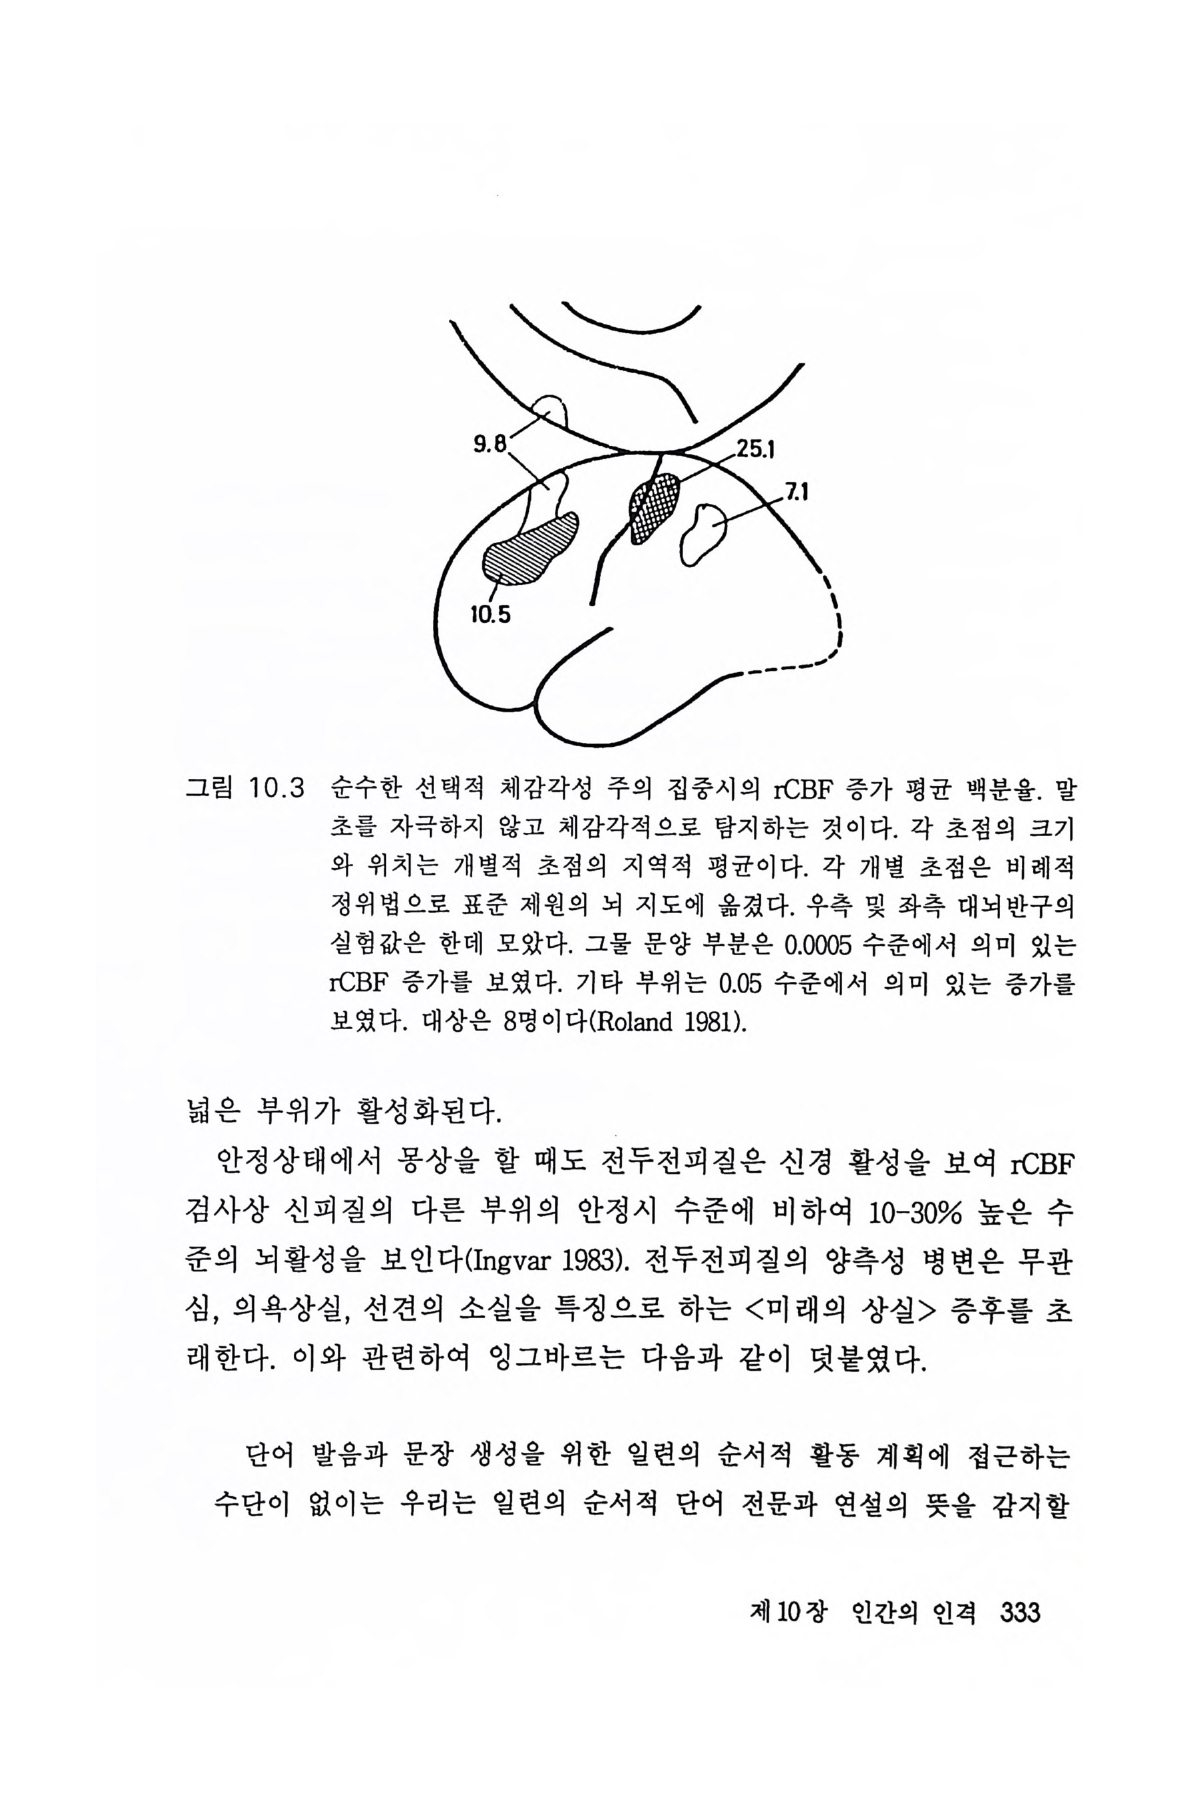 9.8
25.1
7.1
10.5
그림 10.3 순수한 선택적 체감각성 주의 집중시의 rCBF 증가 평균 백분율. 말
초를 자극하지 않고 체감각적으로 탐지하는 것이다. 각 초점의 크기
와 위치는 개별적 초점의 지역적 평균이다. 각 개별 초점은 비례적
정위법으로 표준 제원의 뇌 지도에 옮겼다. 우측 및 좌측 대뇌반구의
실험값은 한데 모았다. 그물 문양 부분은 0.0005 수준에서 의미 있는
rCBF 증가를 보였다. 기타 부위는 0.05 수준에서 의미 있는 증가를
보였다. 대상은 8명이다(Roland 1981).
넓은 부위가 활성화된다.
안정상태에서 몽상을 할 때도 전두전피질은 신경 활성을 보여 rCBF
검사상 신피질의 다른 부위의 안정시 수준에 비하여 10-30% 높은 수
준의 뇌활성을 보인다(Ingvar 1983). 전두전피질의 양측성 병변은 무관
심, 의욕상실, 선견의 소실을 특징으로 하는 <미래의 상실> 증후를 초
래한다. 이와 관련하여 잉그바르는 다음과 같이 덧붙였다.
단어 발음과 문장 생성을 위한 일련의 순서적 활동 계획에 접근하는
수단이 없이는 우리는 일련의 순서적 단어 전문과 연설의 뜻을 감지할
제10장 인간의 인격 333